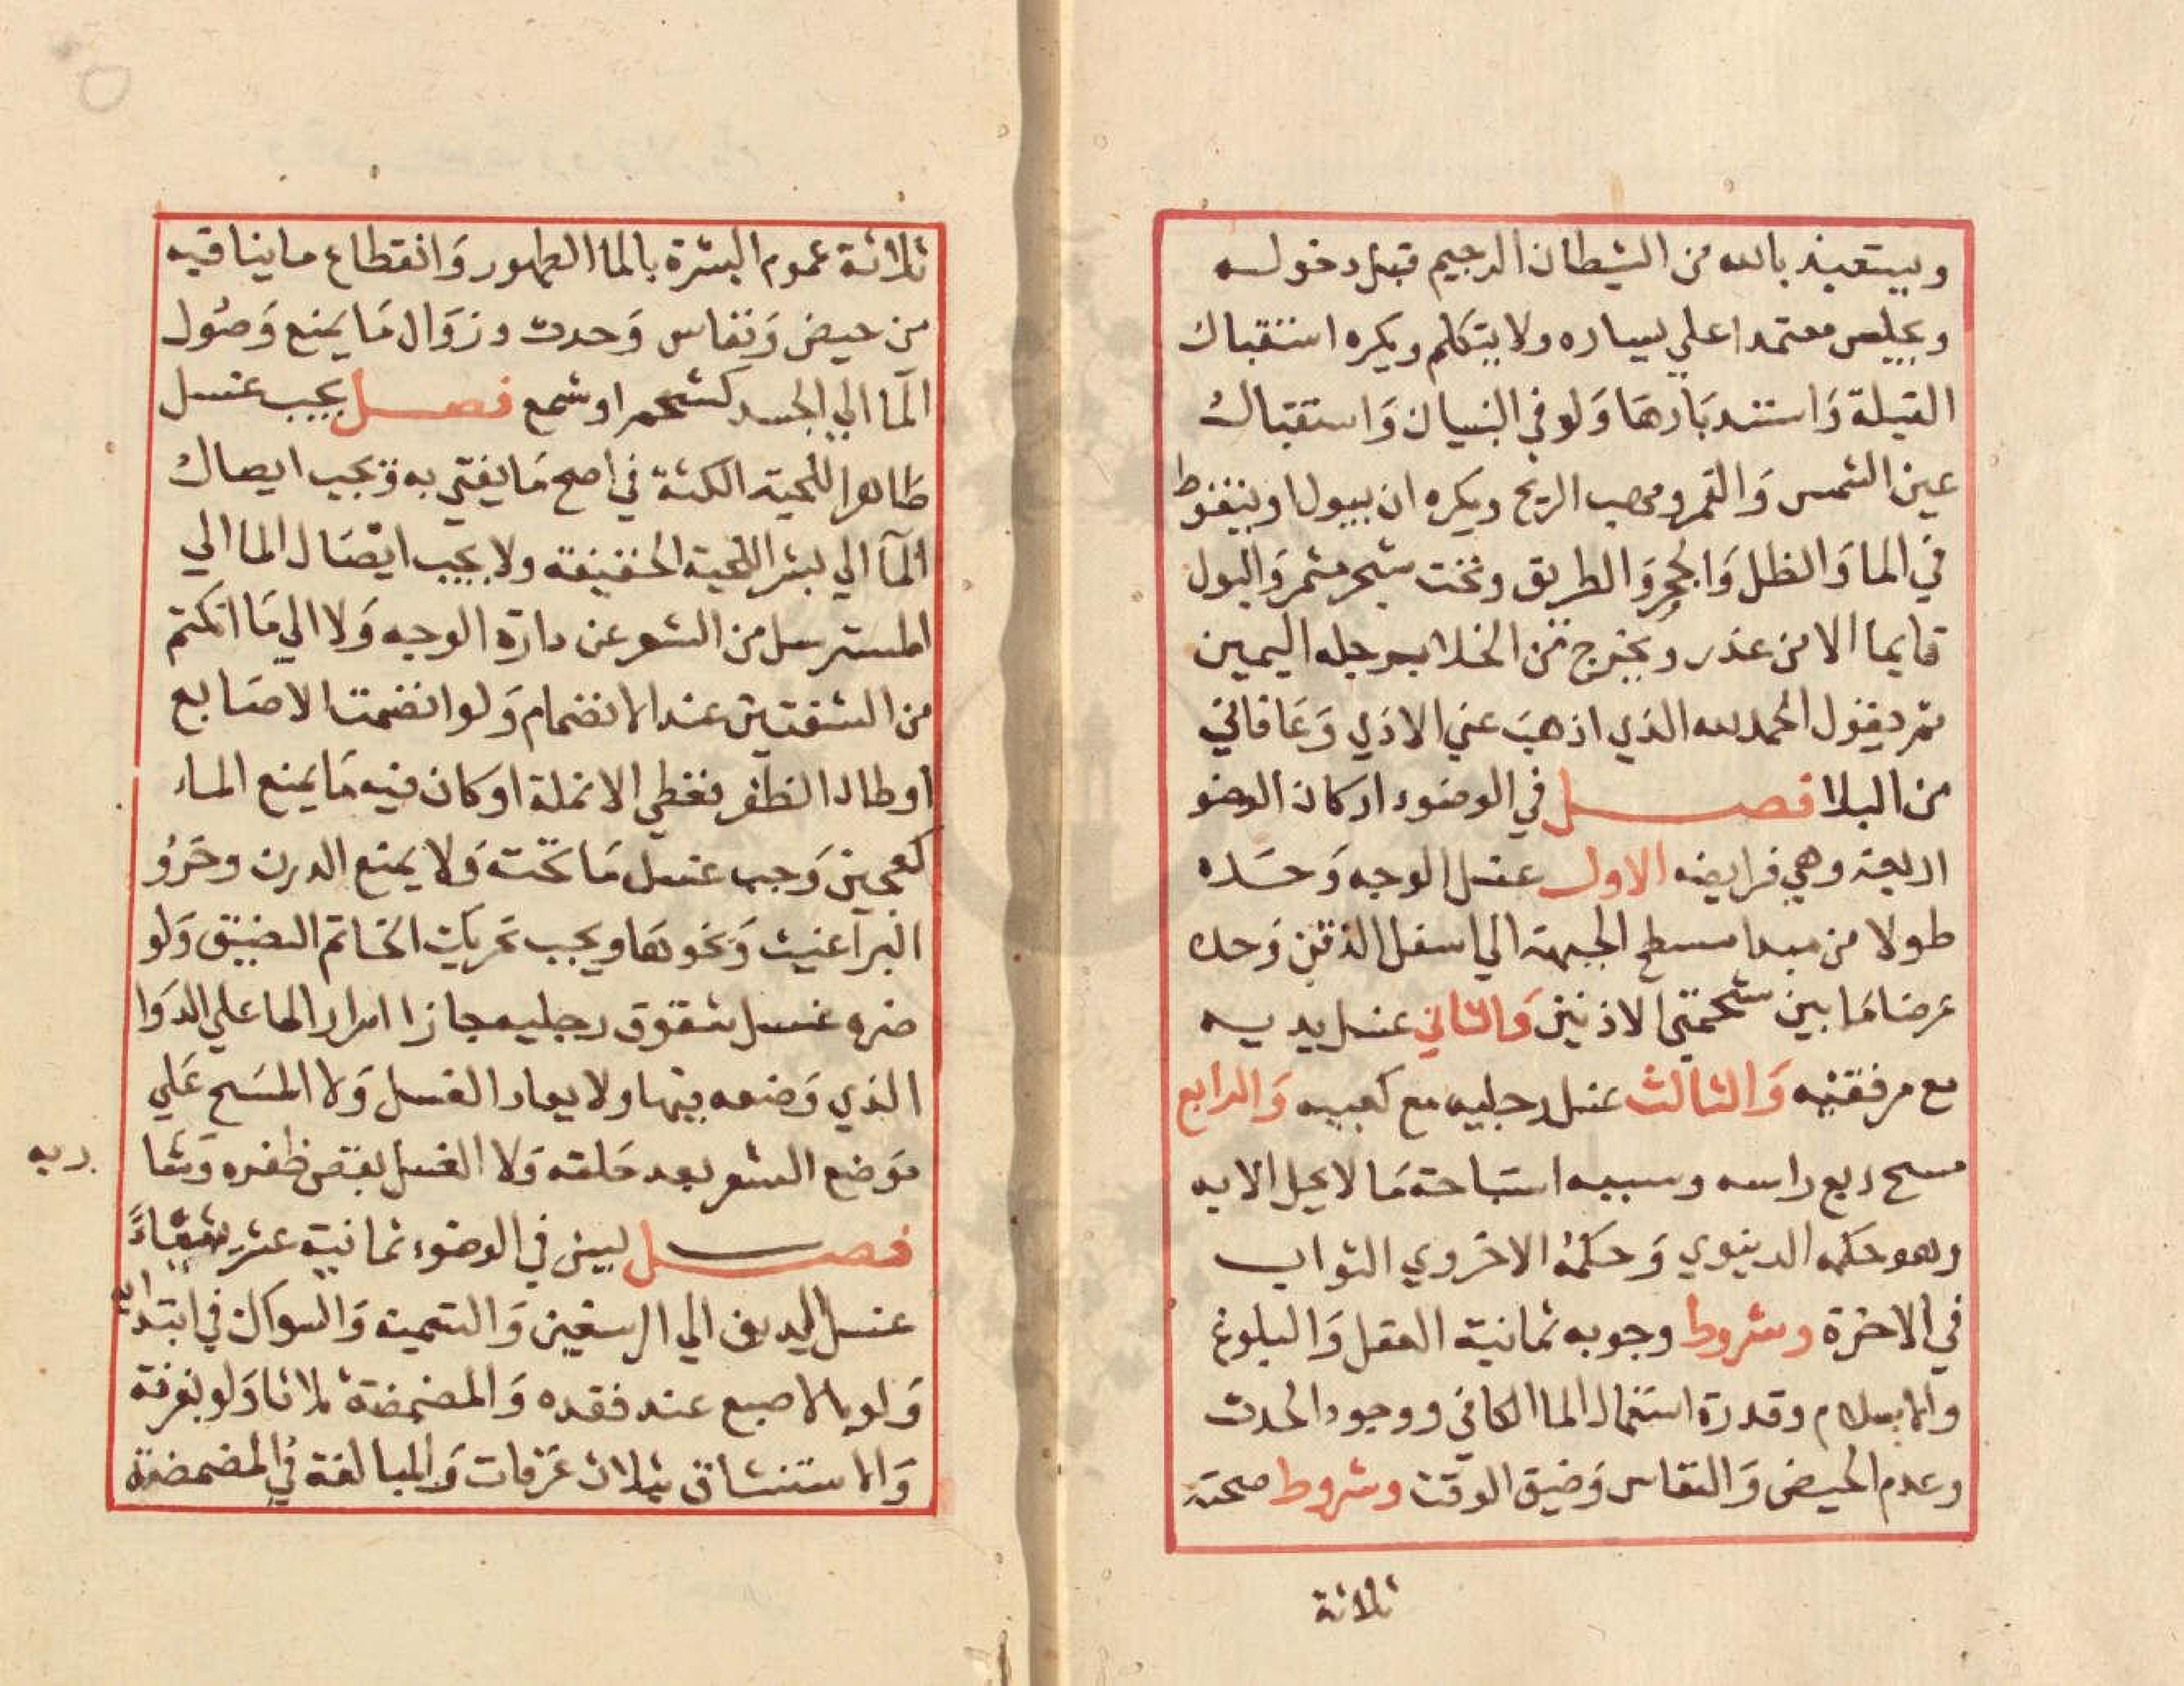 ويستعيذ بالله من الشيطان الرجيم قبل دخوله
ويجلس معتمدا علي يساره ولا يتكلم ويكره استقبال
القبلة وَاستدبَارهَا وَلو في البنيان وَاستقبال
عين الشمس وَالقمر ومهب الريح ويكره ان يبول او يتغوط
في الما وَالظل وَالجحر وَالطريق وتحت شجر مثمر وَالبول
قايما الا من عذر ويخرج من الخلا برجله اليمين
ثم يقول الحمد لله الذي اذهبَ عني الاذي وَعَافاني
من البلا فصل في الوضوء اركان الوضو
اربعة وهي فرايضه الاول غسل الوجه وَحَده
طولا من مبدا مسطح الجبهة الي اسفل الذقن وَحده
عرضا مَا بين شحمتي الاذنين وَالثاني غسل يديه
مع مرفقيه وَالثالث غسل رجليه مع كعبيه وَالرابع
مسح ربع راسه وسببه استباحة مَا لا يحل الا به
وهو حكمه الدنيوي وَحكمهُ الاخروي الثواب
في الاخرة وشروط وجوبه ثمانية العقل وَالبلوغ
والاسلام وقدرة استعمال الما الكافي ووجود الحدث
وعدم الحيض وَالنفاس وَضيق الوقت وشروط صحته
ثلاثة
ثلاثة عموم البشرة بالما الطهور وَانقطاع ما ينافيه
من حيض وَنفاس وَحدث وزوَال مَا يمنع وَصُول
المآ الي الجسد كشحم او شمع فصل يجب غسل
ظاهر اللحية الكثة في اصح مَا يفتي به وَيجب ايصال
المآ الي بشر اللحية الخفيفة ولا يجب ايصَال الما الي
المسترسل من الشعر عن دارة الوجه وَلا الي مَا انكتم
من الشفتين عند الانضمام وَلو انضمت الاصَابع
او طال الظفر فغطي الانملة او كان فيه مَا يمنع الماء
كعجين وَجب غسل مَا تحته وَلا يمنع الدرن وخرؤ
البرآغيث وَنحوهَا ويجب تحريك الخاتم الضيق وَلو
ضره غسل شقوق رجليه جاز امرار الما علي الدوَا
الذي وَضعه فيها ولا يعاد الغسل وَلا المسَح عَلي
موَضع الشعر بعد حَلقه وَلا الغسل بقص ظفره وَشا
ربه
فصل ليسن في الوضوء ثمانية عشر شيئاً
غسل اليدين الي الرسغين وَالتسمية وَالسواك في ابتدايه
وَلو بالاصبع عند فقده وَالمضمضة ثلاثا وَلو بغرفة
وَالاستنشاق بثلاث غَرفات وَالمبالغة في المضمضة